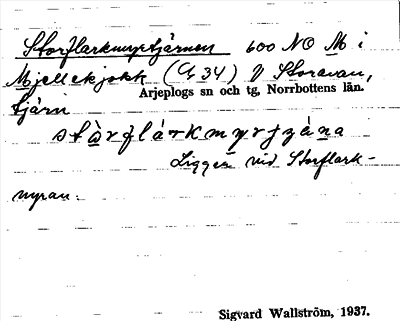 Storflarkmyrtjärnen 600 NO M i
Mjellekjokk (G 34) V Storavan,
Arjeplogs sn och tg, Norrbottens län.
tjärn
Ligger vid Storflark-
myran.
Sigvard Wallström, 1937.